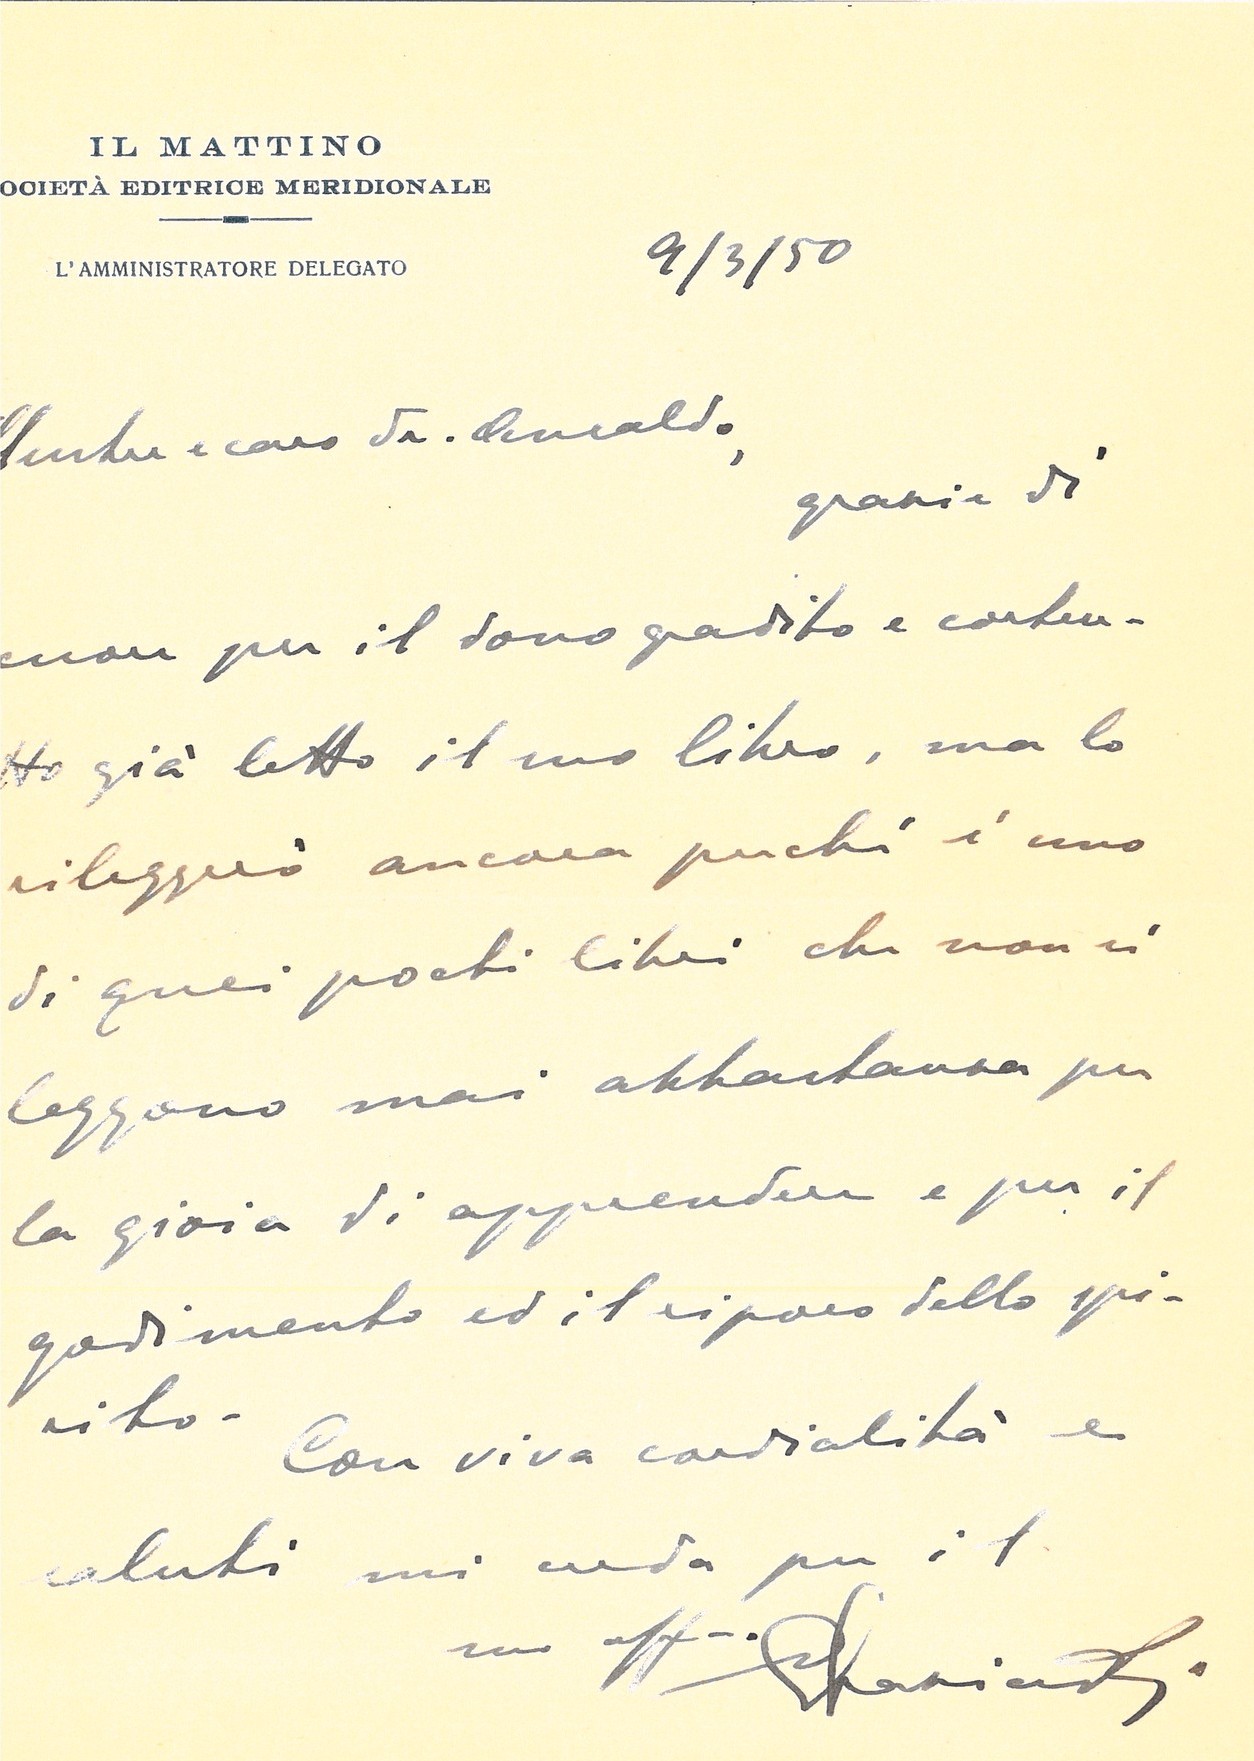 IL MATTINO
OCIETÀ EDITRICE MERIDIONALE
L'AMMINISTRATORE DELEGATO
9/3/50
e caro Dr.
grazie di
cuore per il dono gradito e
tto già letto il suo libro, ma lo
rileggerò ancora perché è uno
di quei pochi libri che non si
leggono mai abbastanza per
la gioia di apprendere e per il
godimento ed il riposo dello spi-
rito -
Con viva cordialità e
saluti mi creda per il
suo aff